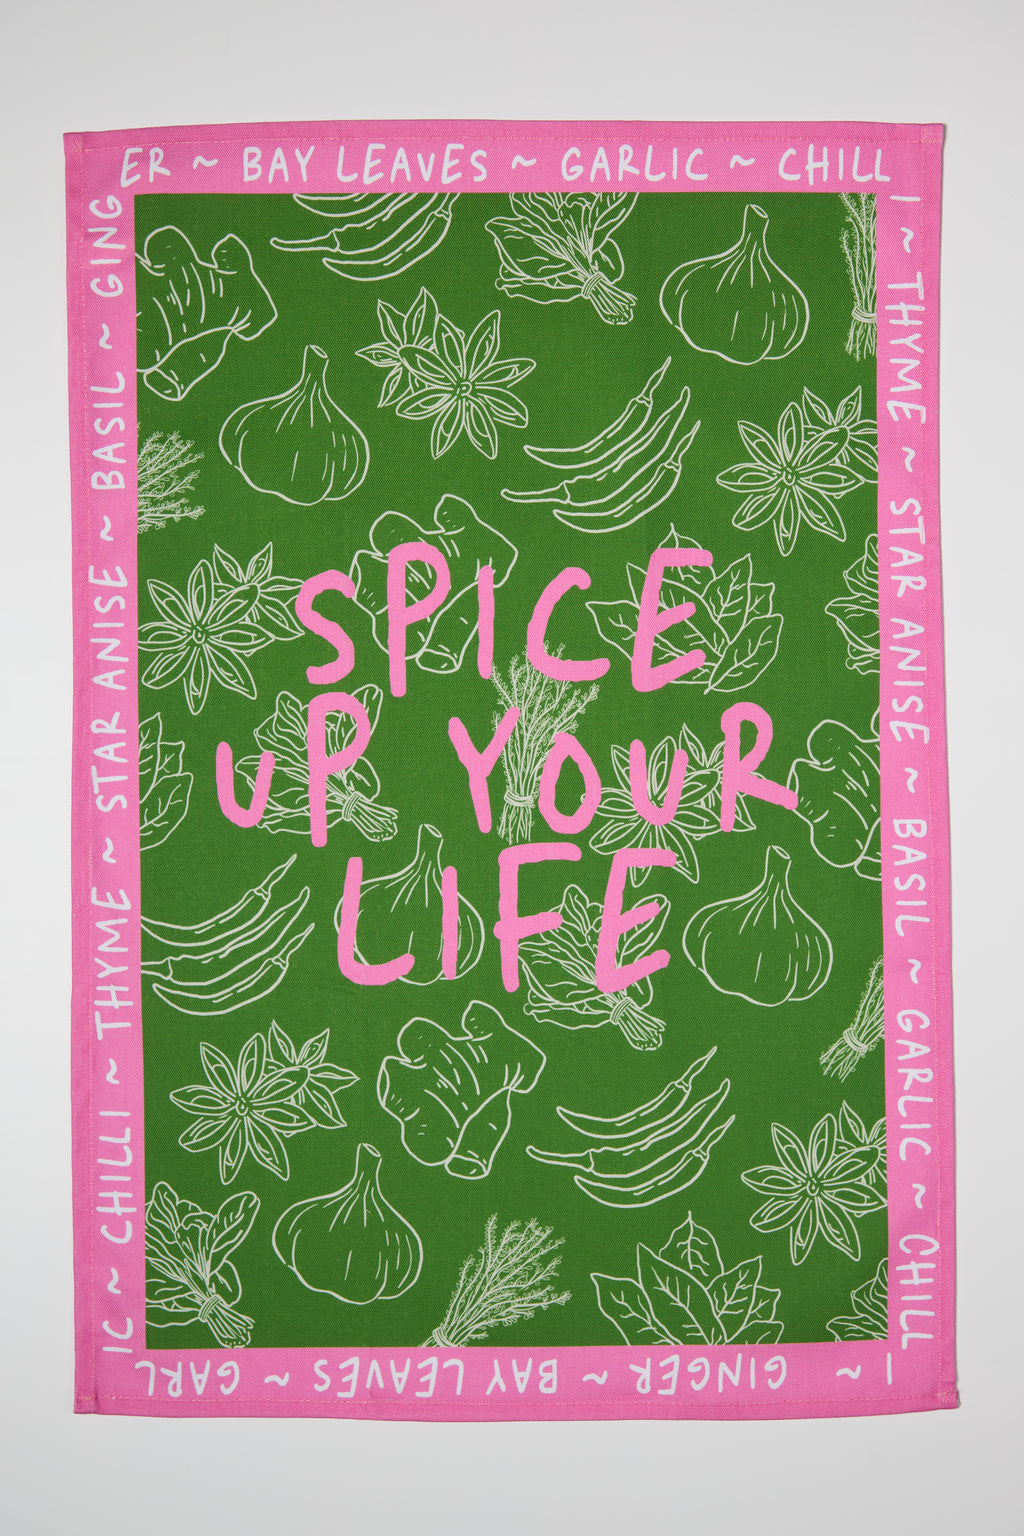 GINGER ~ BAY LEAVES ~ GARLIC ~ CHILLI ~ THYME ~ STAR ANISE ~ BASIL ~ GARLIC ~ CHILLI ~ GINGER ~ BAY LEAVES ~ GARLIC ~ CHILLI ~ THYME ~ STAR ANISE ~ BASIL ~
SPICE
UP YOUR
LIFE